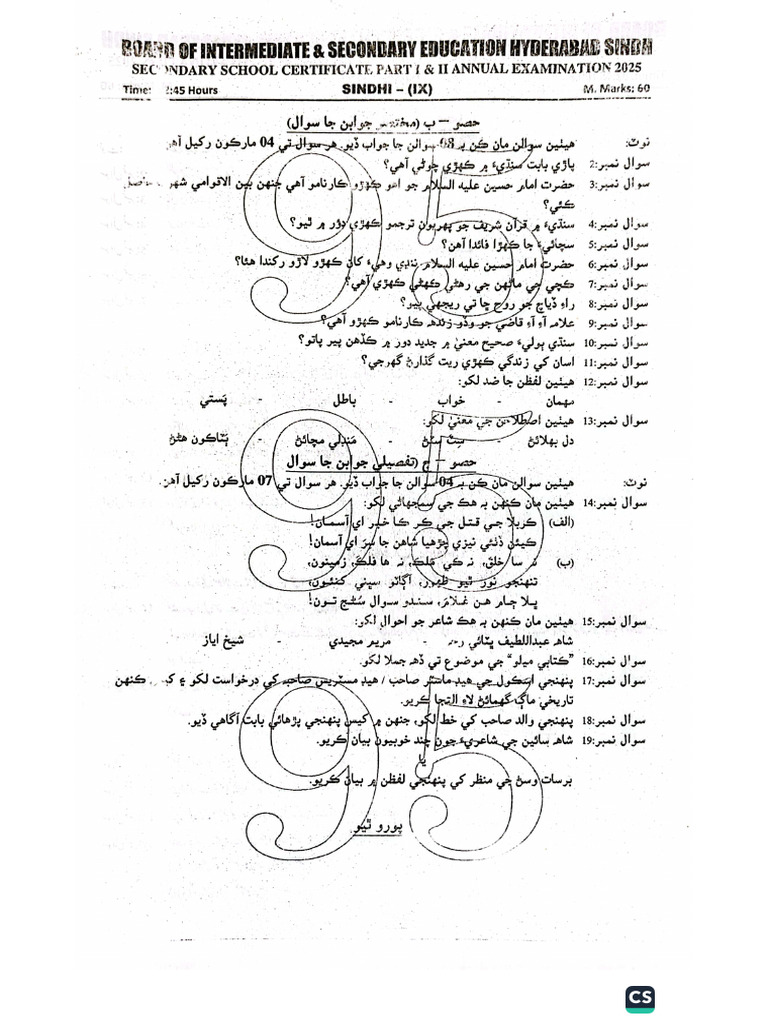 BOARD OF INTERMEDIATE & SECONDARY EDUCATION HYDERABAD SINDH
SECONDARY SCHOOL CERTIFICATE PART I & II ANNUAL EXAMINATION 2025
Time: 2:45 Hours SINDHI – (IX) M. Marks: 60
حصو – ب (مختصر جوابن جا سوال)
نوٽ: هيٺين سوالن مان ڪن به 08 سوالن جا جواب ڏيو. هر سوال تي 04 مارڪون رکيل آهن
سوال نمبر:2 پاڙي بابت سنڌيءَ ۾ ڪهڙي چوڻي آهي؟
سوال نمبر:3 حضرت امام حسين عليه السلام جو اهو ڪهڙو ڪارنامو آهي جنهن بين الاقوامي شهرت حاصل
ڪئي؟
سوال نمبر:4 سنڌيءَ ۾ قرآن شريف جو پهريون ترجمو ڪهڙي دؤر ۾ ٿيو؟
سوال نمبر:5 سچائيءَ جا ڪهڙا فائدا آهن؟
سوال نمبر:6 حضرت امام حسين عليه السلام ننڍي وهيءَ کان ڪهڙو لاڙو رکندا هئا؟
سوال نمبر:7 ڪڇي جي ماڻهن جي رهڻي ڪهڻي ڪهڙي آهي؟
سوال نمبر:8 راءِ ڏياچ جو روح ڇا تي ريجهي پيو؟
سوال نمبر:9 علامه آءِ آءِ قاضي جو وڏو زنده ڪارنامو ڪهڙو آهي؟
سوال نمبر:10 سنڌي ٻوليءَ صحيح معنيٰ ۾ جديد دور ۾ ڪڏهن پير پاتو؟
سوال نمبر:11 اسان کي زندگي ڪهڙي ريت گذارڻ گهرجي؟
سوال نمبر:12 هيٺين لفظن جا ضد لکو:
مهمان - خواب - باطل - پستي
سوال نمبر:13 هيٺين اصطلاحن جي معنيٰ لکو:
دل بهلائڻ - سٽ سٽڻ - مَندلي مچائڻ - ٻٽاڪون هڻڻ
حصو – ج (تفصيلي جوابن جا سوال
نوٽ: هيٺين سوالن مان ڪن به 04 سوالن جا جواب ڏيو. هر سوال تي 07 مارڪون رکيل آهن.
سوال نمبر:14 هيٺين مان ڪنهن به هڪ جي سمجهاڻي لکو:
(الف) ڪربلا جي قتل جي ڪر ڪا خبر اي آسمان!
ڪيئن ڏٺئي نيزي چڙهيا شاهن جا سر اي آسمان!
(ب) نه سا خلق، نه ڪي مَلڪ، نه ها فلڪ، زمينون،
تنهنجو نور ٿيو ظهور، اڳاٽو سڀني کنئون،
ٻلا ڄام هن غلام، سندو سوال سُڻج تون!
سوال نمبر:15 هيٺين مان ڪنهن به هڪ شاعر جو احوال لکو:
شاهه عبداللطيف ڀٽائي رحه - مريم مجيدي - شيخ اياز
سوال نمبر:16 "ڪتابي ميلو" جي موضوع تي ڏهه جملا لکو.
سوال نمبر:17 پنهنجي اسڪول جي هيڊ ماستر صاحب / هيڊ مسٽريس صاحبه کي درخواست لکو ۽ کين ڪنهن
تاريخي ماڳ گهمائڻ لاءِ التجا ڪريو.
سوال نمبر:18 پنهنجي والد صاحب کي خط لکو، جنهن ۾ کيس پنهنجي پڙهائي بابت آگاهي ڏيو.
سوال نمبر:19 شاهه سائين جي شاعريءَ جون چند خوبيون بيان ڪريو.
يا
برسات وسڻ جي منظر کي پنهنجي لفظن ۾ بيان ڪريو.
پورو ٿيو
95
95
95
CS